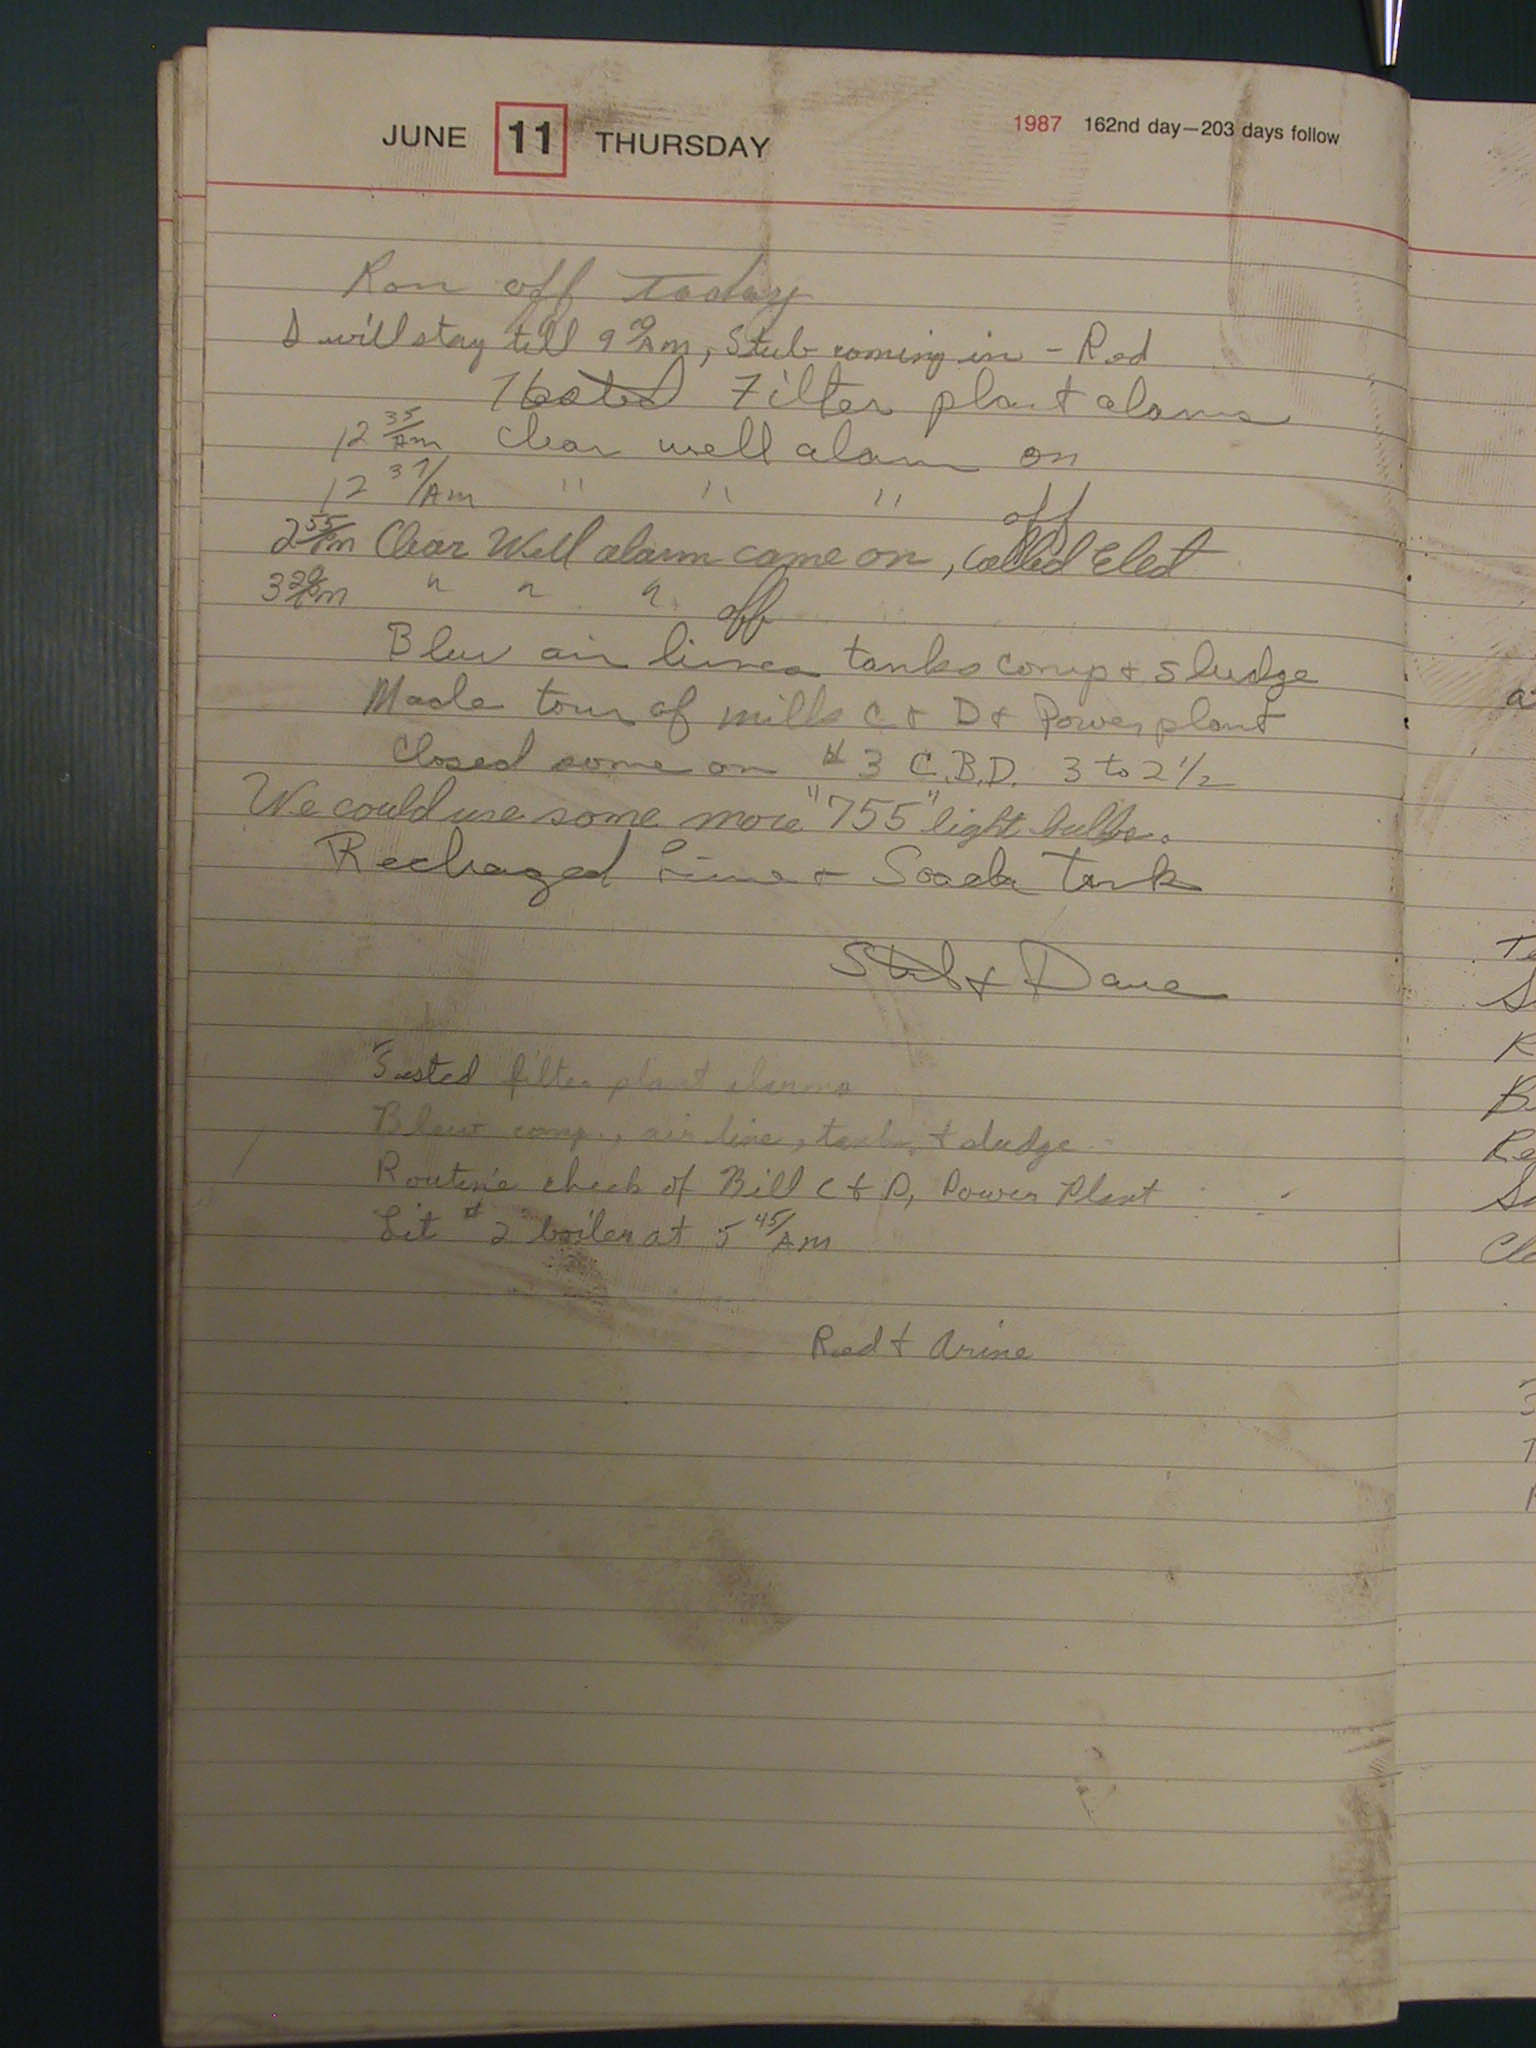 JUNE 11 THURSDAY 1987 162nd day—203 days follow
Ron off Today
I will stay till 9 00 AM, Stub coming in - Red
Tested Filter plant alarms
12 35/AM Clear well alarm on
12 37/AM " " " off
2 55/PM Clear Well alarm came on, called Elect
3 20/PM " " " off
Blew air lines tanks comp & sludge
Made tour of mills C & D & Power plant
Closed some on #3 C.B.D. 3 to 2 1/2
We could use some more "755" light bulbs.
Rechaged Lime & Soada Tank
Stub & Dave
Tested filter plant alarms
Blew comp., air line, tanks & sludge
Routine check of Bill C & D, Power Plant
Lit #2 boiler at 5 45/AM
Red & Arine